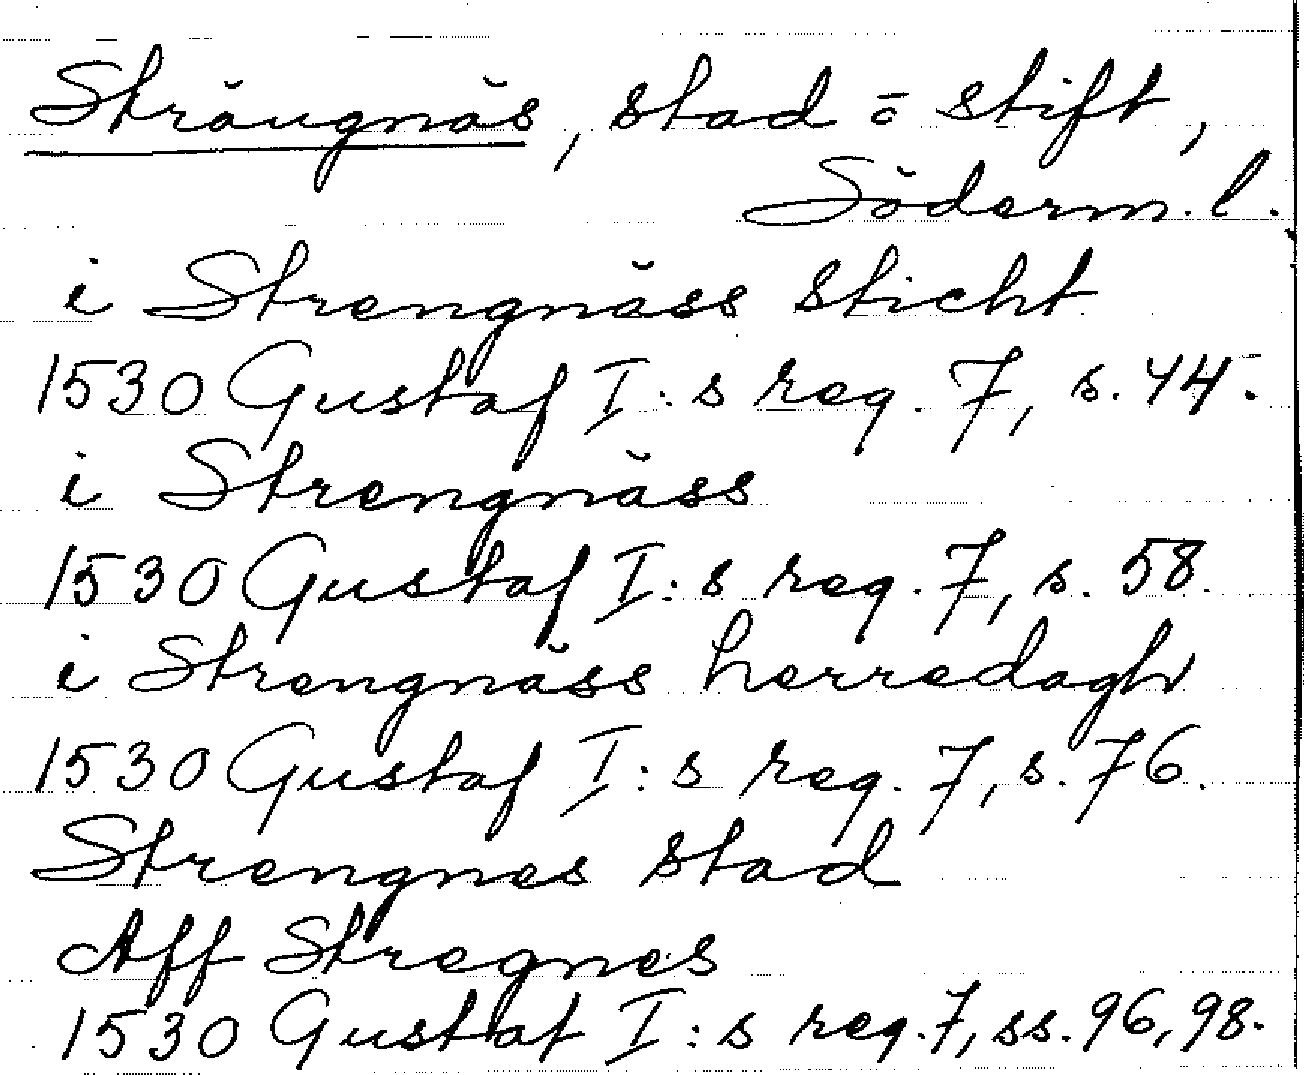 Strängnäs, stad o stift,
Söderm.l.
i Strengnäss sticht
1530 Gustaf I:s reg. 7, s. 44.
i Strengnäss
1530 Gustaf I:s reg. 7, s. 58.
i Strengnäss herredagh
1530 Gustaf I:s reg. 7, s. 76.
Strengnes stad
Aff Stregnes
1530 Gustaf I:s reg. 7, ss. 96, 98.